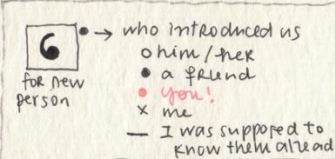 6
for new
person
→ who introduced us
o him/her
• a friend
• you!
x me
— I was supposed to
know them alread